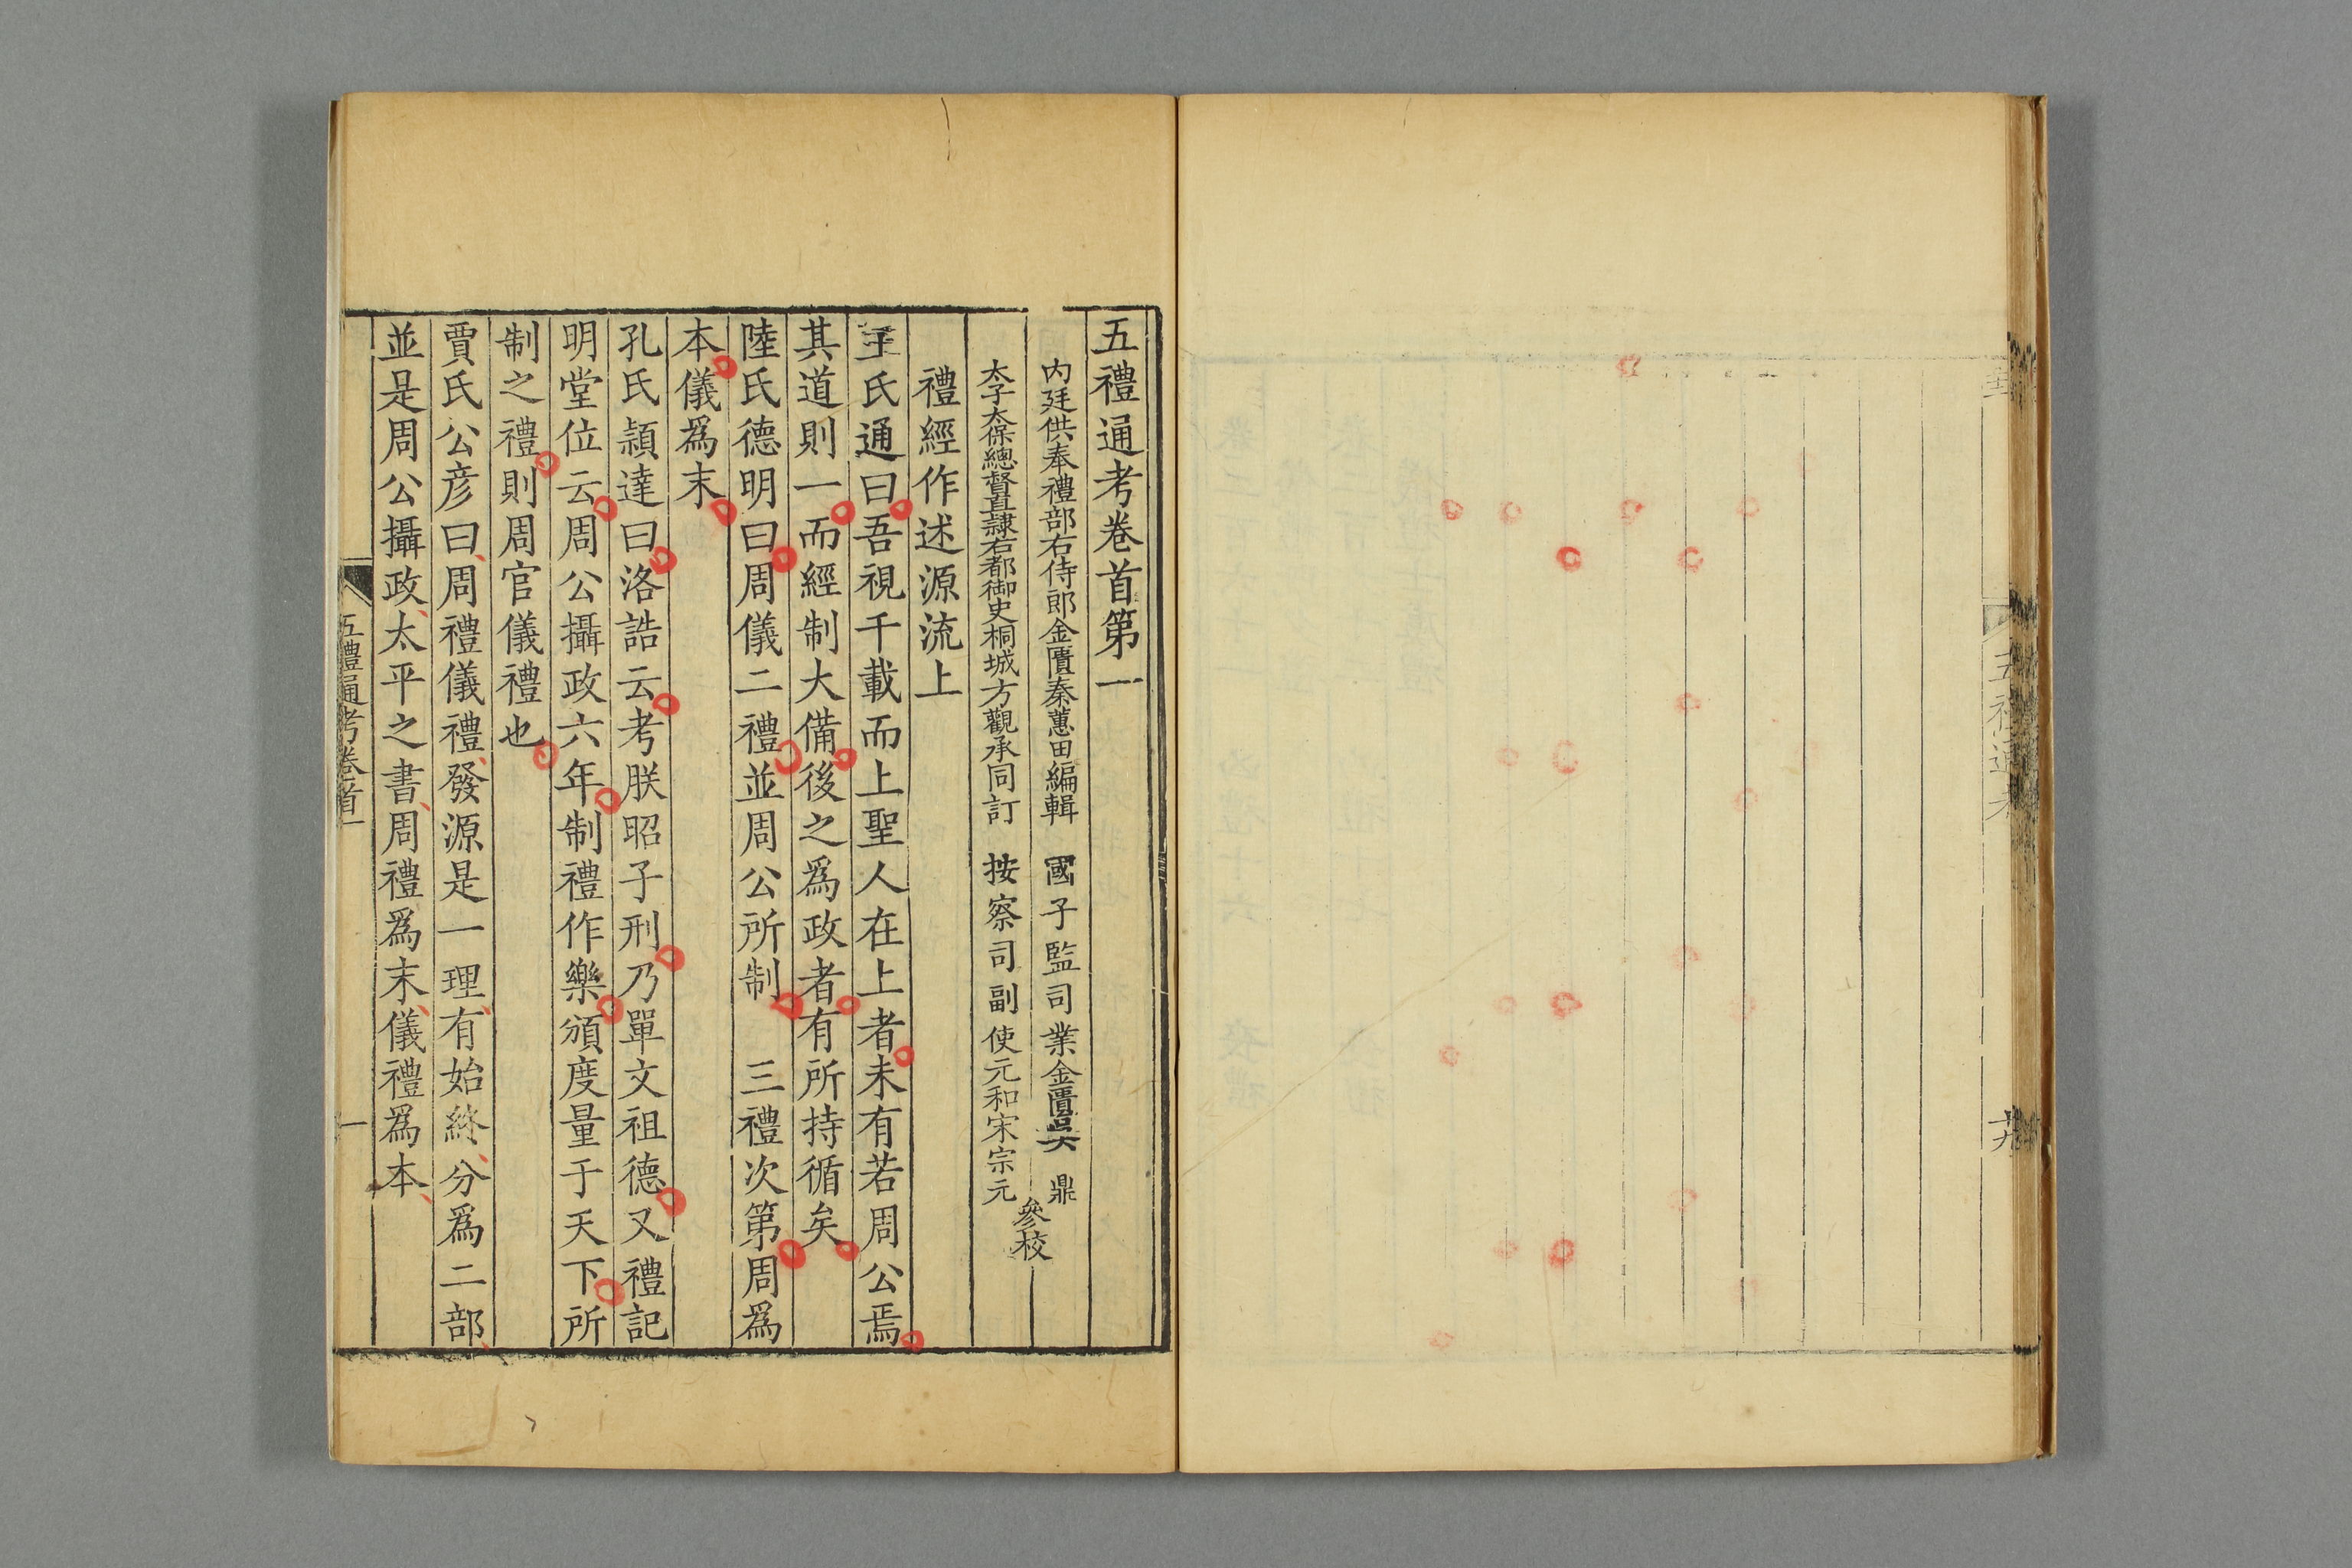 五禮通考卷首第一
內廷供奉禮部右侍郎金匱秦蕙田編輯 國子監司業金匱吳 鼎
太子太保總督直隸右都御史桐城方觀承同訂 按察司副使元和宋宗元
參校
禮經作述源流上
王氏通曰吾視千載而上聖人在上者未有若周公焉
其道則一而經制大備後之爲政者有所持循矣
陸氏德明曰周儀二禮並周公所制 三禮次第周爲
本儀爲末
孔氏穎達曰洛誥云考朕昭子刑乃單文祖德又禮記
明堂位云周公攝政六年制禮作樂頒度量于天下所
制之禮則周官儀禮也
賈氏公彦曰周禮儀禮發源是一理有始終分爲二部
並是周公攝政太平之書周禮爲末儀禮爲本
五禮通考卷首一
一
五禮通考